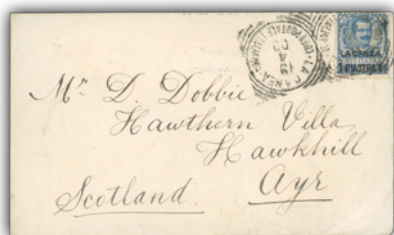 LA CANEA
1 PIASTRA 1
LA CANEA
Mr D. Dobbie
Hawthern Villa
Hawkhill
Ayr
Scotland.